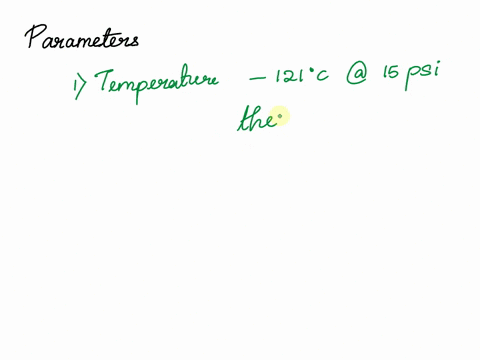 Parameters
1) Temperature – 121°C @ 15 psi
the